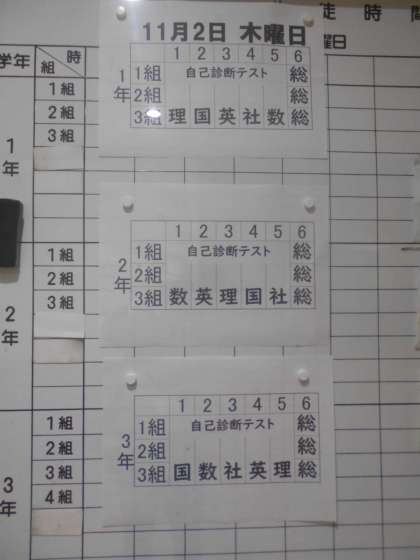 徒時間
曜日
学年
時
組
1年
1組
2組
3組
2年
1組
2組
3組
3年
1組
2組
3組
4組
11月2日 木曜日
1 2 3 4 5 6
1年
1組 自己診断テスト 総
2組 総
3組 理 国 英 社 数 総
1 2 3 4 5 6
2年
1組 自己診断テスト 総
2組 総
3組 数 英 理 国 社 総
1 2 3 4 5 6
3年
1組 自己診断テスト 総
2組 総
3組 国 数 社 英 理 総